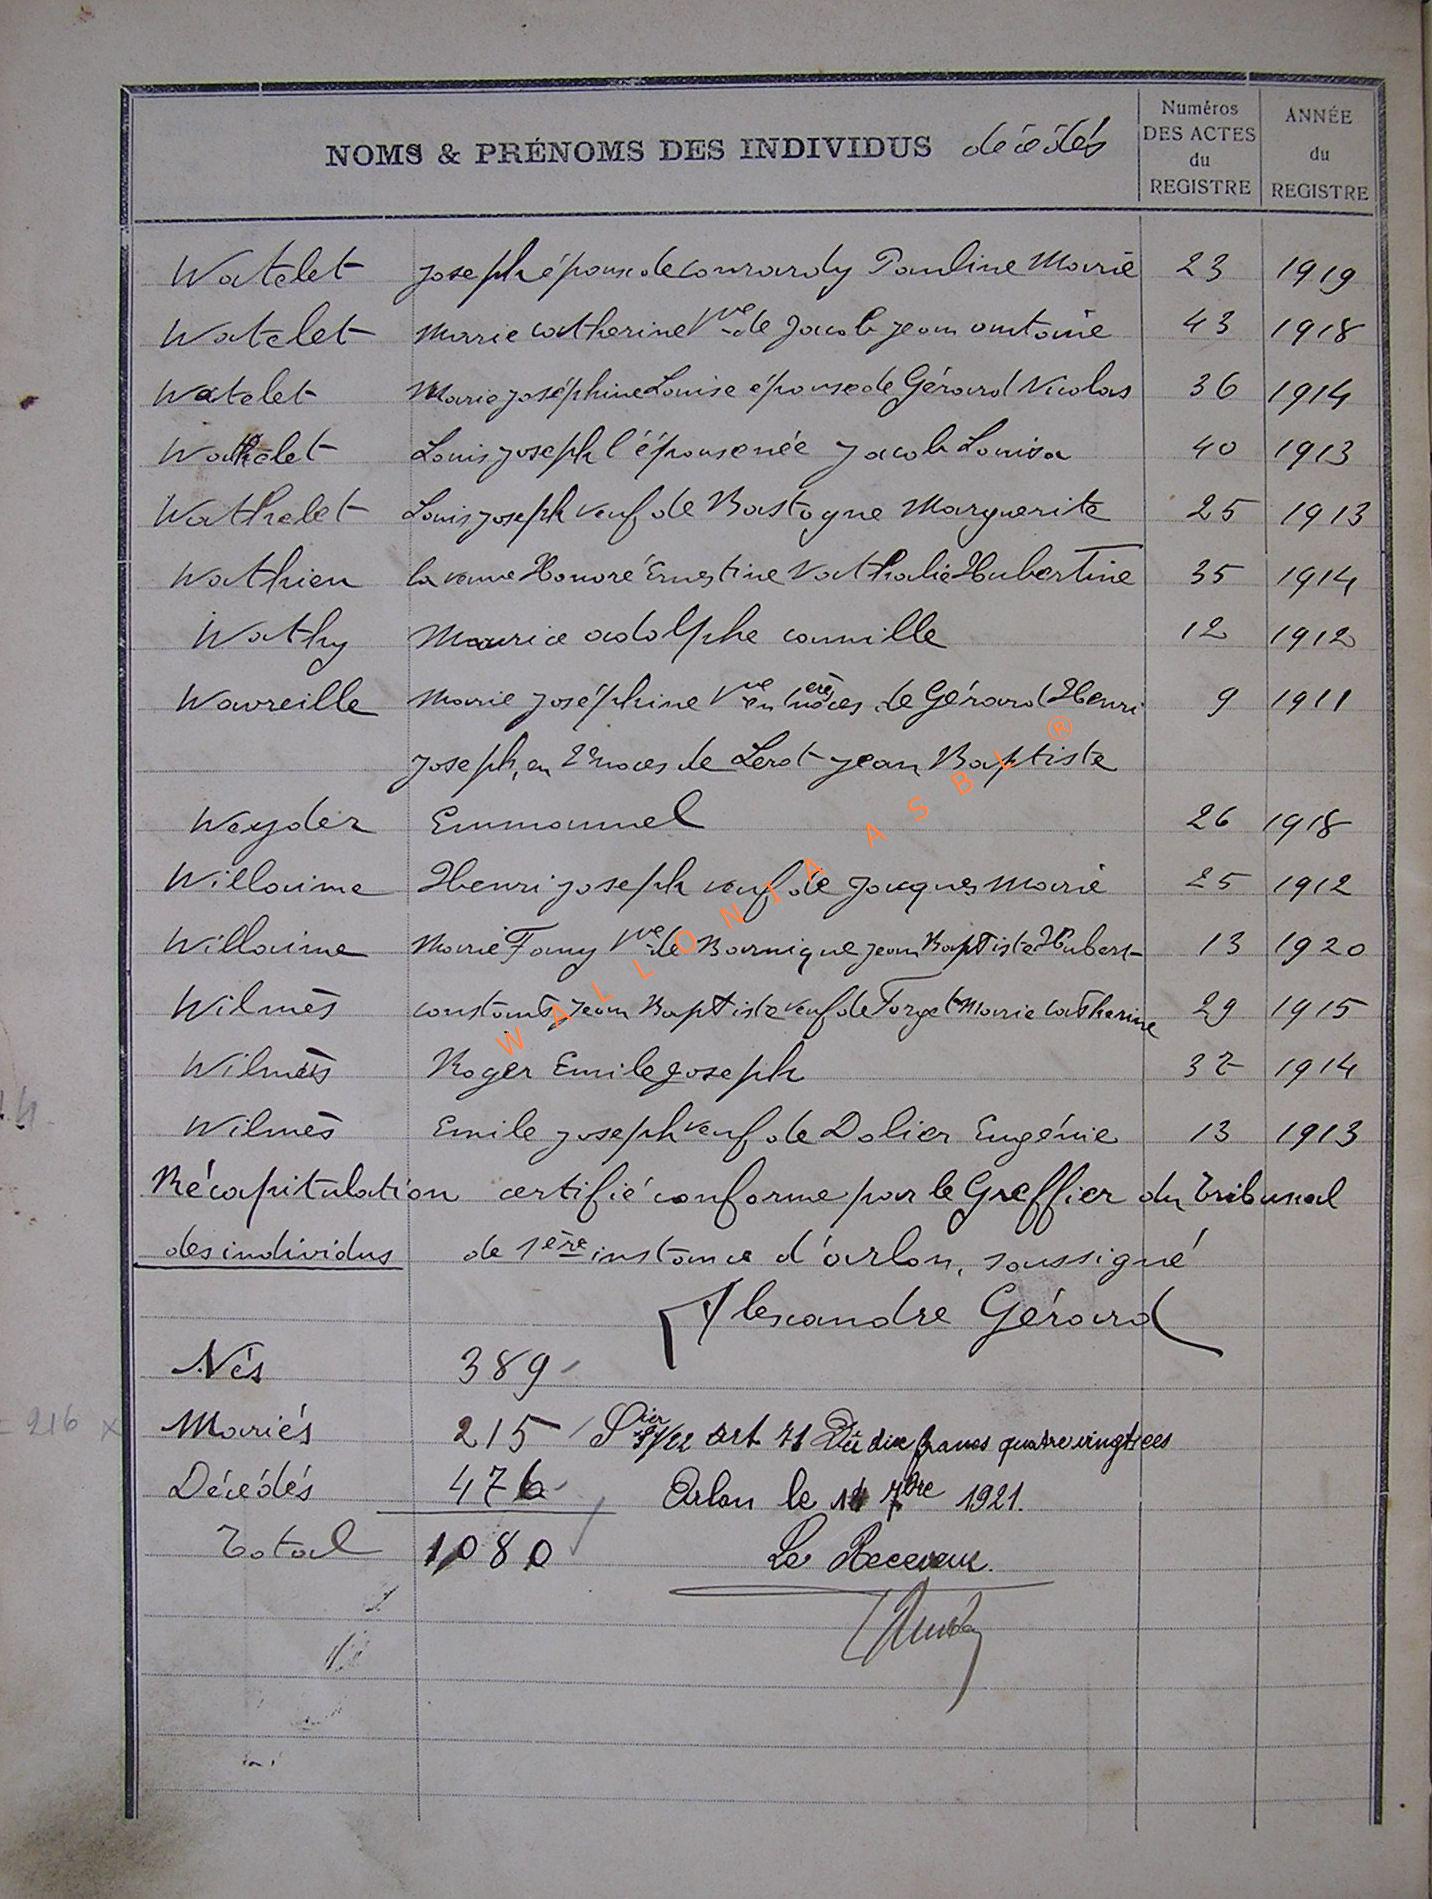 NOMS & PRÉNOMS DES INDIVIDUS décédés
Numéros DES ACTES du REGISTRE
ANNÉE du REGISTRE
Watelet Joseph époux de Conrardy Pauline Marie 23 1919
Watelet Marie Catherine Vve de Jacob Jean Antoine 43 1918
Watelet Marie Joséphine Louise épouse de Gérard Nicolas 36 1914
Wathelet Louis Joseph l'épouse née Jacob Louisa 40 1913
Wathelet Louis Joseph veuf de Bastogne Marguerite 25 1913
Wathieu la veuve Honoré Ernestine Nathalie Hubertine 35 1914
Wathy Maurice Adolphe Camille 12 1912
Wavreille Marie Joséphine Vve en 1ères noces de Gérard Henri 9 1911
Joseph, en 2es noces de Lerot Jean Baptiste
Weyder Emmanuel 26 1918
Willaime Henri Joseph veuf de Jacques Marie 25 1912
Willaime Marie Fany Vve de Barnique Jean Baptiste Hubert 13 1920
Wilmès Constant Jean Baptiste veuf de Forget Marie Catherine 29 1915
Wilmès Roger Emile Joseph 32 1914
Wilmès Emile Joseph veuf de Dolier Eugénie 13 1913
Récapitulation certifié conforme par le Greffier du Tribunal
des individus de 1ère instance d'Arlon, soussigné
Alexandre Gérard
Nés 389
= 216 x Mariés 215 art 71 Dû dix francs quatre vingt ces
Décédés 476 Arlon le 14 7bre 1921.
Total 1080 Le Receveur.
WALLONIA ASBL ®